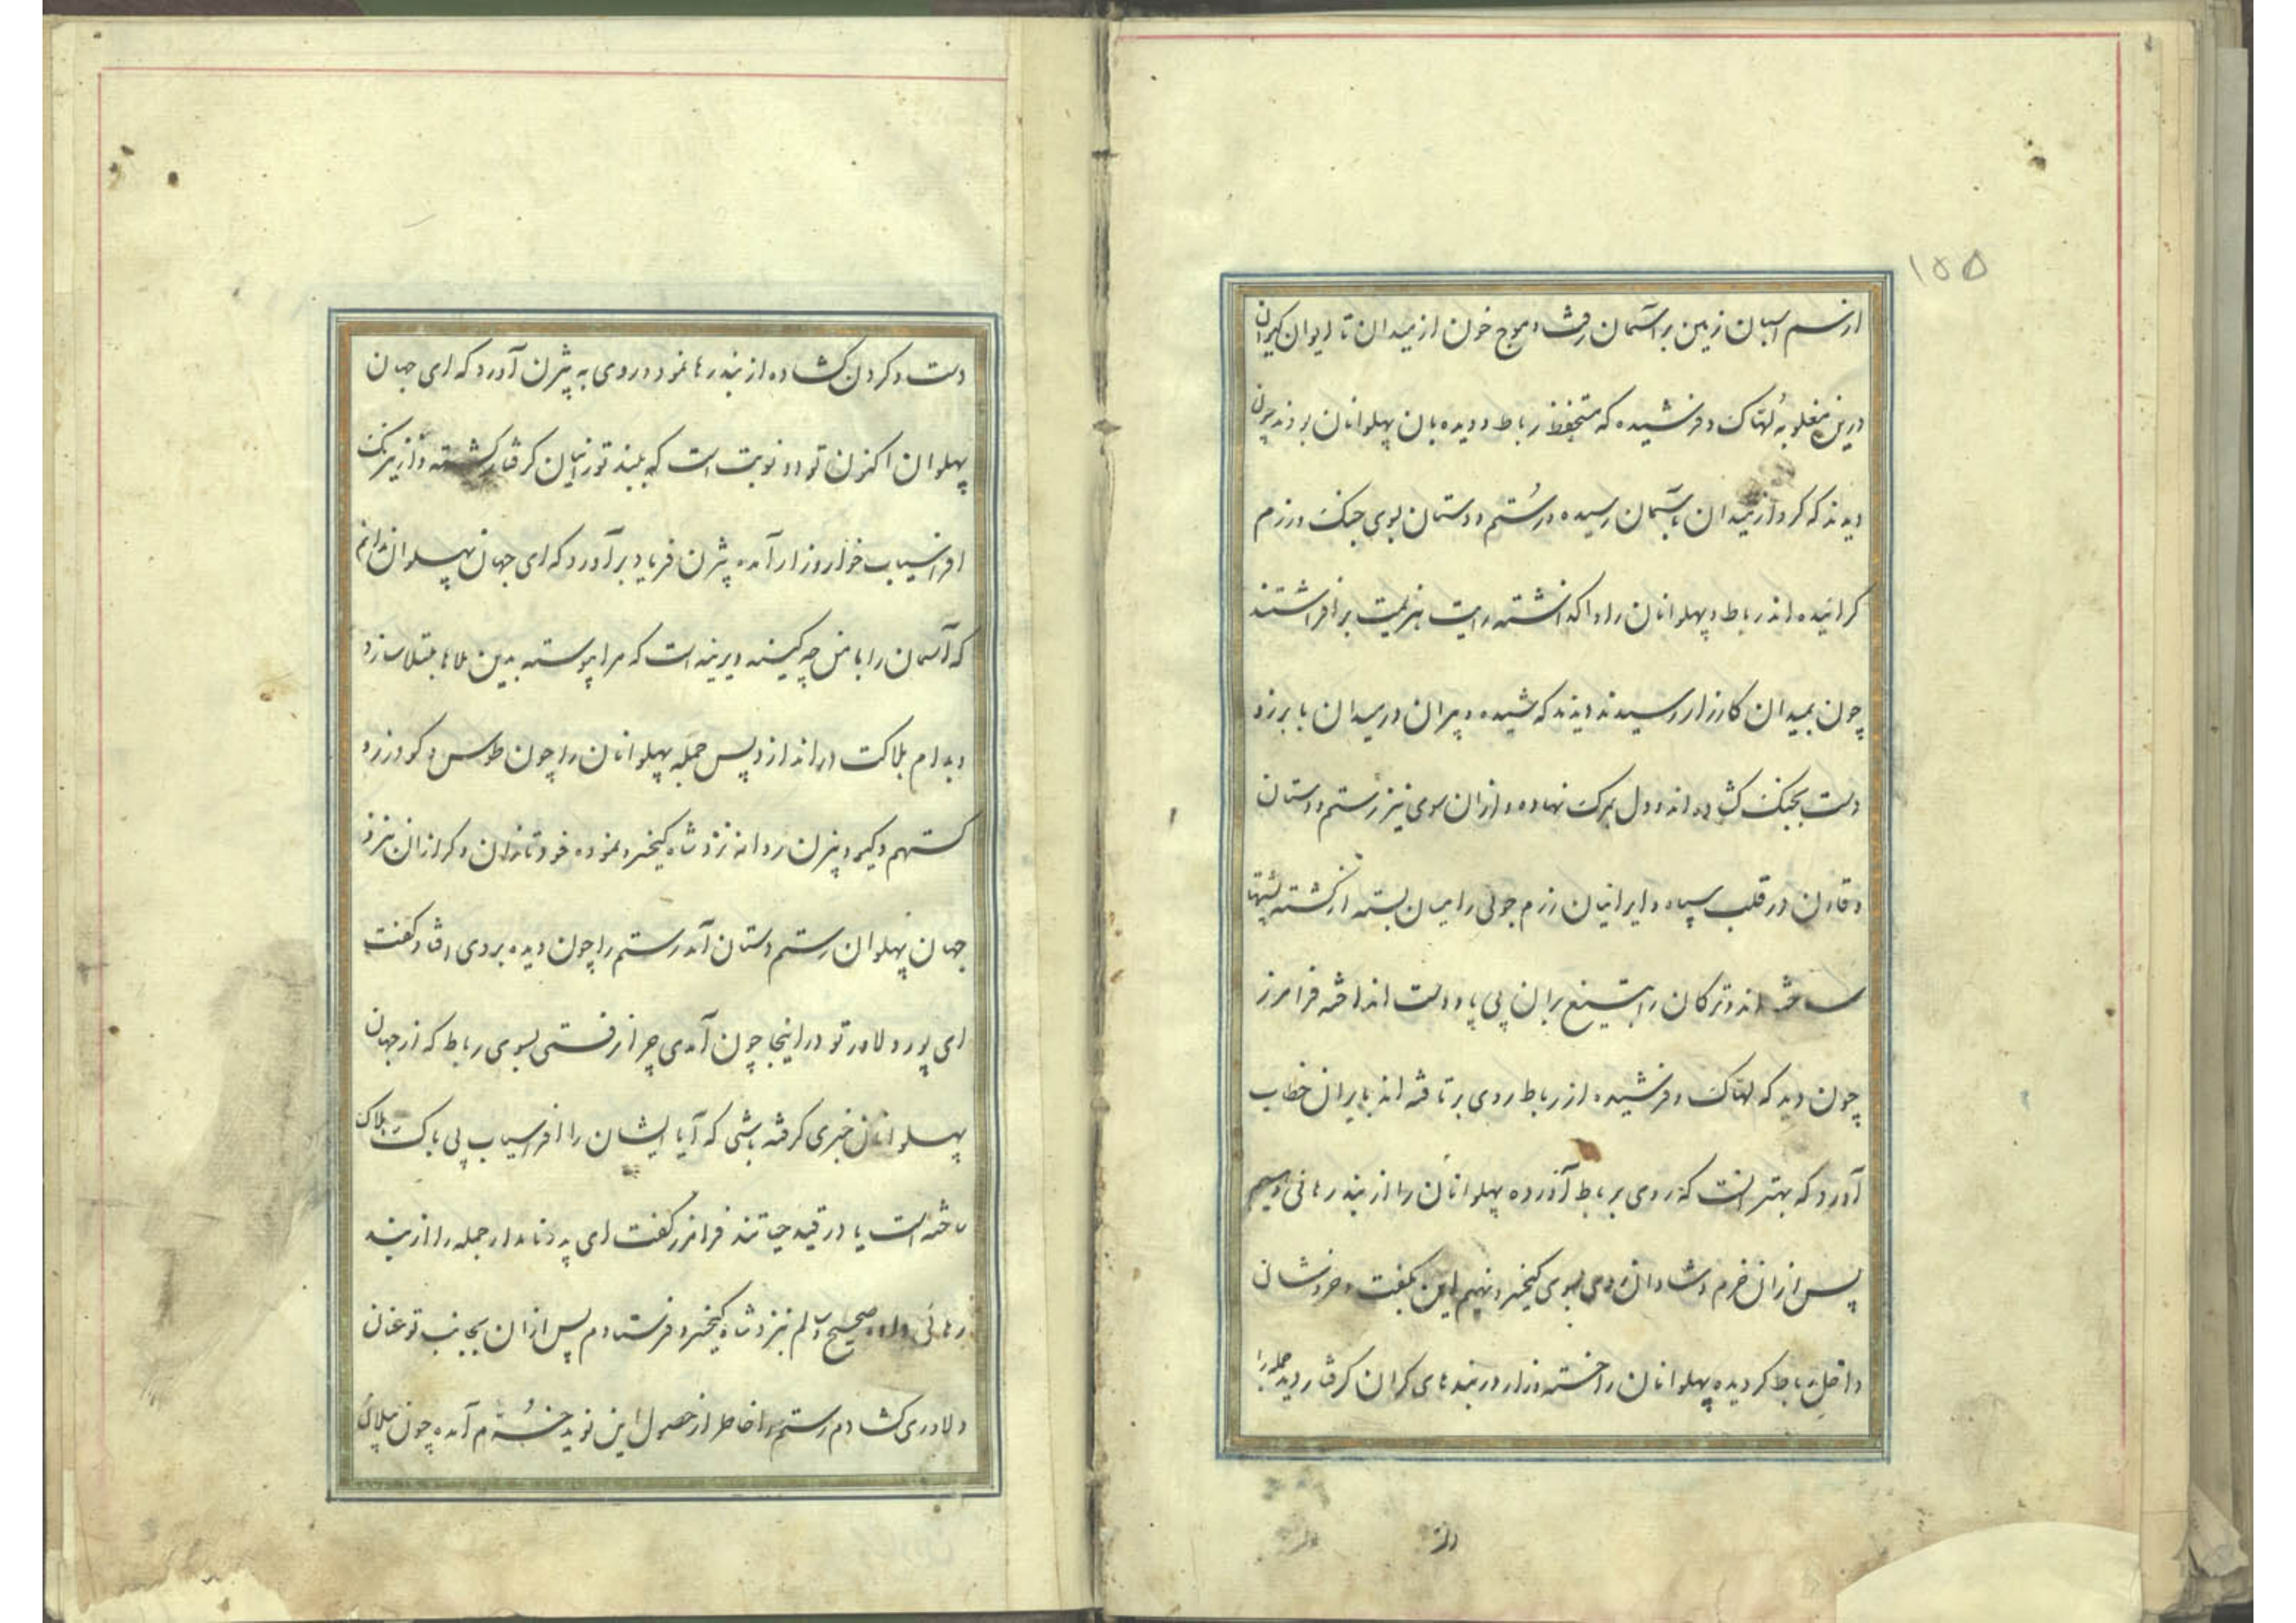 ۱۵۵
از سم اسبان زمین بر آسمان رفته و موج خون از میدان تا ایوان کیوان
درین مغلوبه لهاک و فرشیده که متحفظ رباط و دیده بان پهلوانان بودند چون
دیدند که گرد از میدان بآسمان رسیده و رستم و دستان بوی جنگ و رزم
کرانیده اند رباط و پهلوانان را واگذاشته رایت هزیمت برافراشتند
چون بمیدان کارزار رسیدند دیدند که شیده و پیران در میدان با برزو
دست بجنگ گشاده اند و دل بمرگ نهاده و ازان سوی نیز رستم و دستان
و قارن در قلب سپاه و ایرانیان رزم جوئی را میان بسته از کشته پشتها
ساخته اند و ترکان را بتیغ بران بی پا و دست انداخته فرامرز
چون دید که لهاک و فرشیده از رباط روی برتافته اند بایران خطاب
آورد که بهتر آنست که روی برباط آورده پهلوانان را از بند رهائی دهیم
پس ازان خرم و شادان روی بسوی کیخسرو نهیم این بگفت و خروشان
داخل رباط گردیده پهلوانان را خسته و زار در بندهای گران گرفتار دید جمله را
دست و گردن گشاده از بند رها نمود و روی به بیژن آورد که ای جهان
پهلوان اکنون تو دو نوبت است که ببند تورانیان گرفتار گشته و از نیرنگ
افراسیاب خوار و زار آمده بیژن فریاد برآورد که ای جهان پهلوان ندانم
که آسمان را با من چه کینه دیرینه است که مرا پیوسته بدین بلاها مبتلا سازد
و بدام هلاکت دراندازد پس جمله پهلوانان را چون طوس و گودرز و
گستهم و گیو و بیژن روانه نزد شاه کیخسرو نموده خود تازان و گرازان بنزد
جهان پهلوان رستم دستان آمد رستم را چون دیده بروی افتاد گفت
ای پور دلاور تو در اینجا چون آمدی چرا نرفتی بسوی رباط که از جهان
پهلوانان خبری گرفته باشی که آیا ایشان را افراسیاب بی باک هلاک
ساخته است یا در قید حیاتند فرامرز گفت ای پدر نامدار جمله را از بند
رهائی داده صحیح و سالم بنزد شاه کیخسرو فرستادم پس ازان بجانب تو عنان
دلاوری گشادم رستم را خاطر از حصول این نوید خرم آمده چون